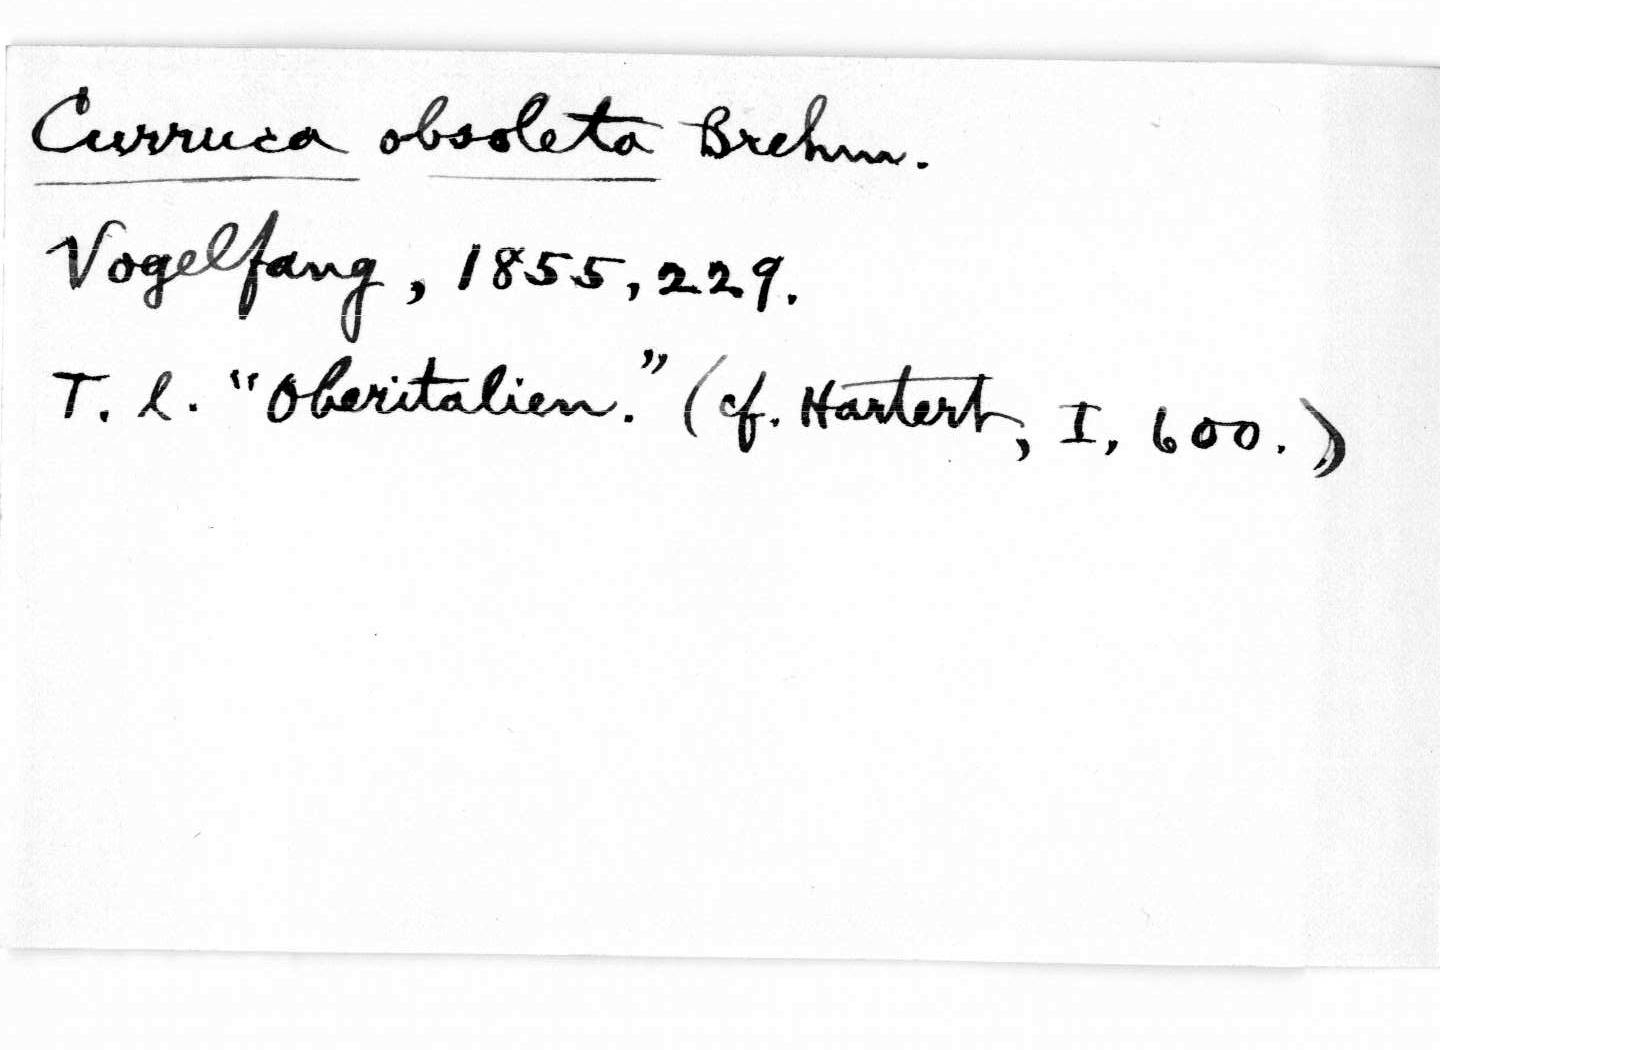 Curruca obsoleta Brehm.
Vogelfang, 1855, 229.
T. l. "Oberitalien." (cf. Hartert, I, 600.)